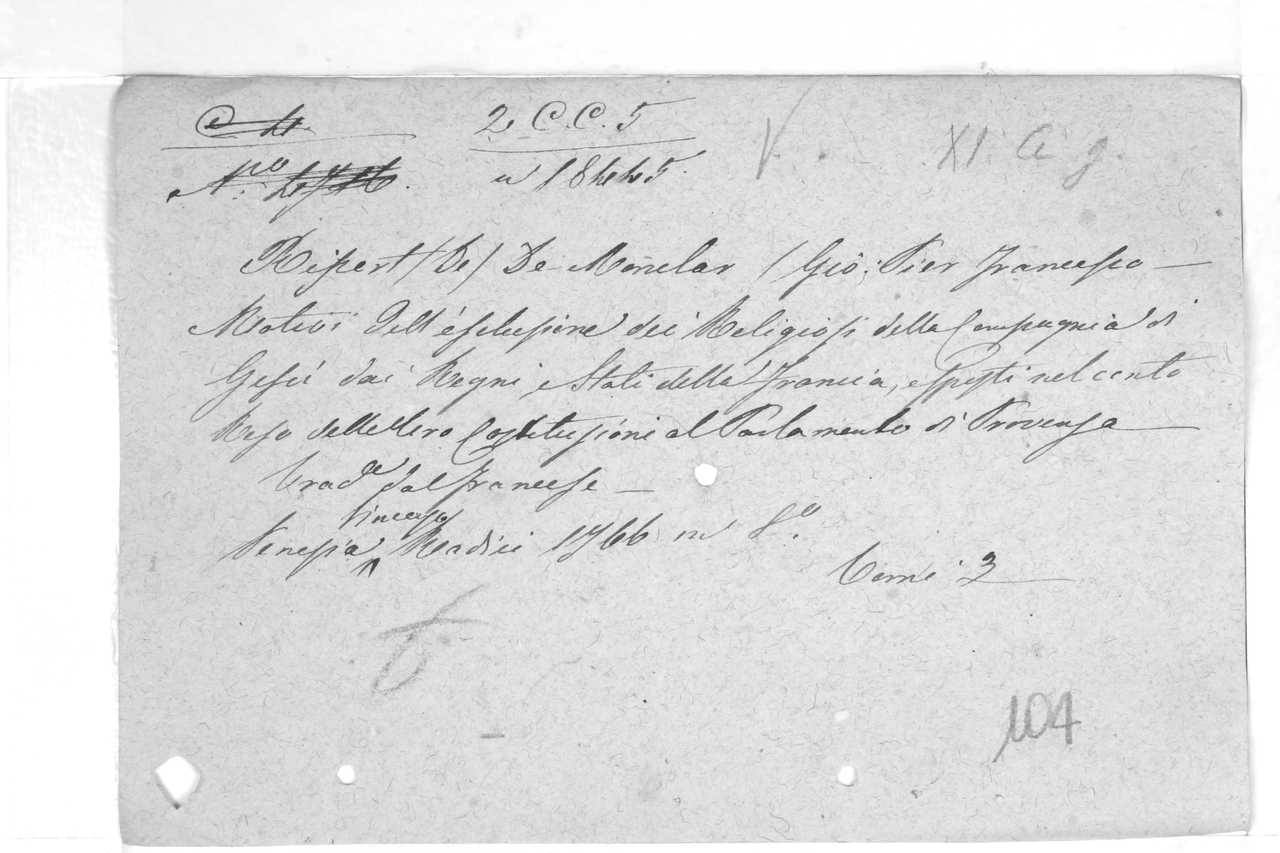 2 C.C. 5
V.
XI. C. g.
n 18445.
Ripert (De) De Monclar (Giò: Pier Francesco —
Motivi dell'esclusione dei Religiosi della Compagnia di
Gesù dai Regni, e Stati della Francia, esposti nel conto
Reso delle loro Costituzioni al Parlamento di Provenza
trad.e dal francese —
Venezia Radici 1766 in 8.o
Tomi 2
104